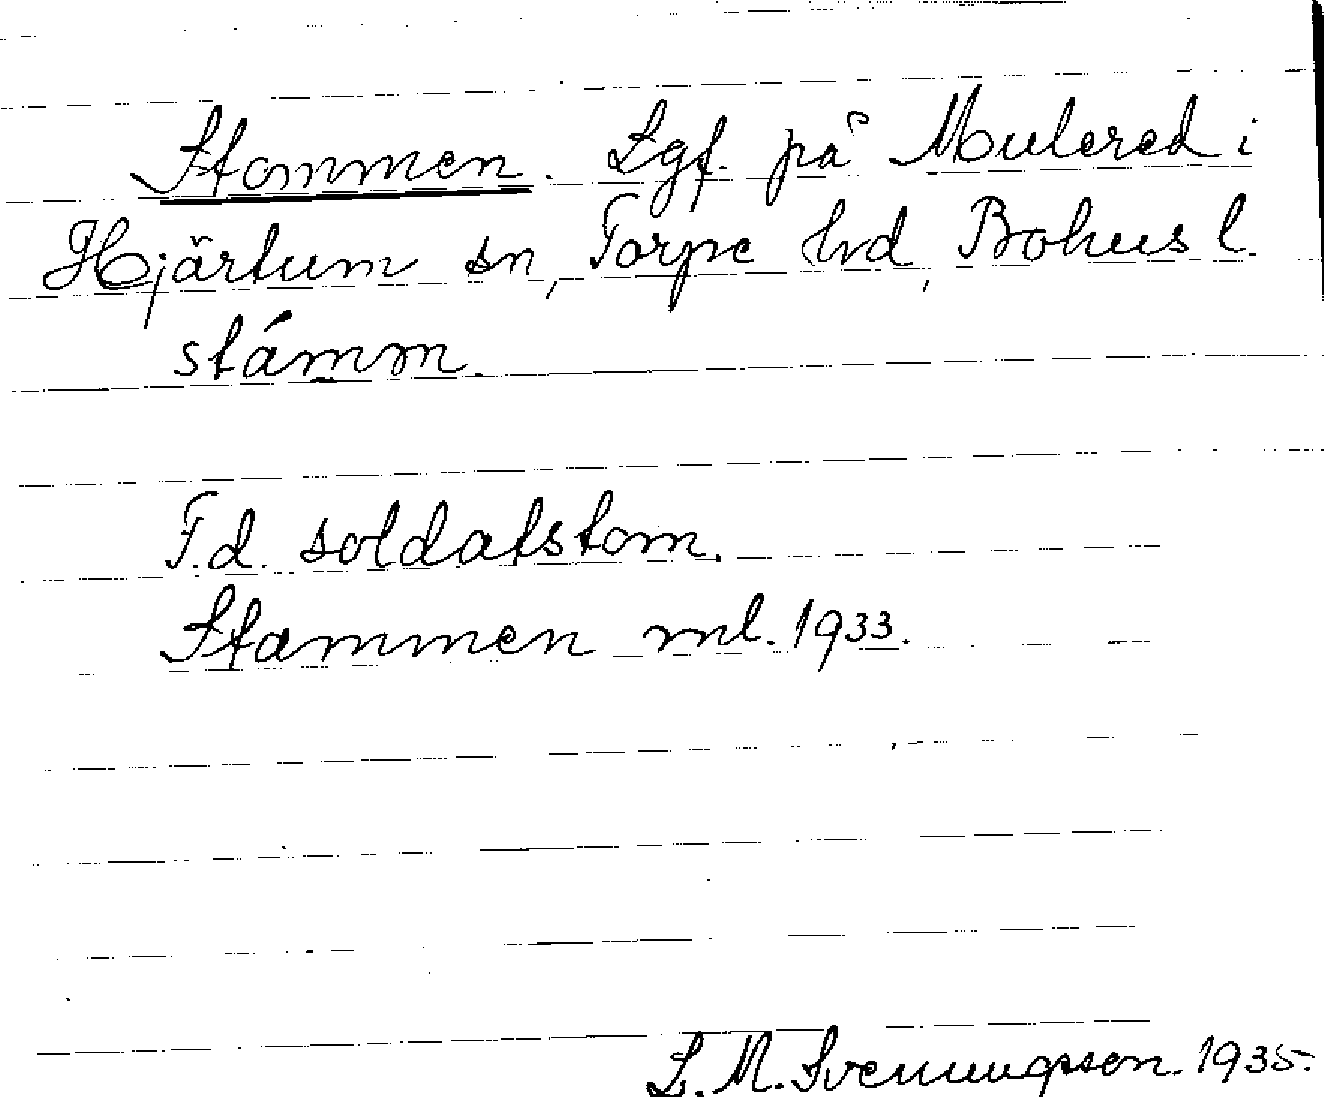 Stommen. Lgf. på Mulered i
Hjärtum sn, Torpe hd, Bohus l.
stámm.
F.d. soldatstom.
Stammen ml. 1933.
L. M. Svenungsson. 1935.